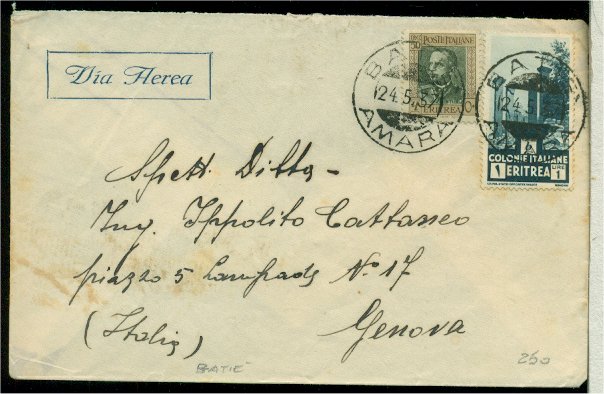 Via Aerea
POSTE ITALIANE
ERITREA
BATIE
12.4.5.37
AMARA
COLONIE ITALIANE
1 ERITREA LIRE 1
Spett. Ditta -
Ing. Ippolito Cattaneo
piazza 5 Lampade N° 17
(Italia) Genova
BATIE
250